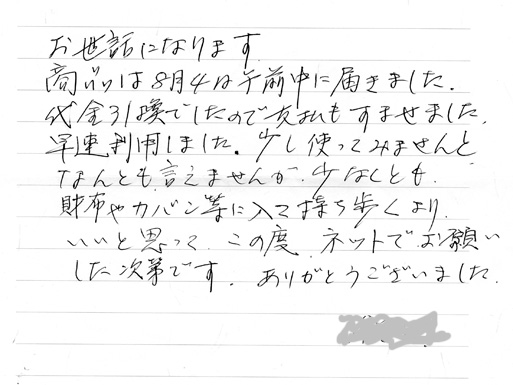 お世話になります
商品は8月4日午前中に届きました.
代金引換でしたので支払もすませました.
早速利用しました。少し使ってみませんと
なんとも言えませんが、少なくとも、
財布やカバン等に入て持ち歩くより、
いいと思って、この度、ネットでお願い
した次第です. ありがとうございました.